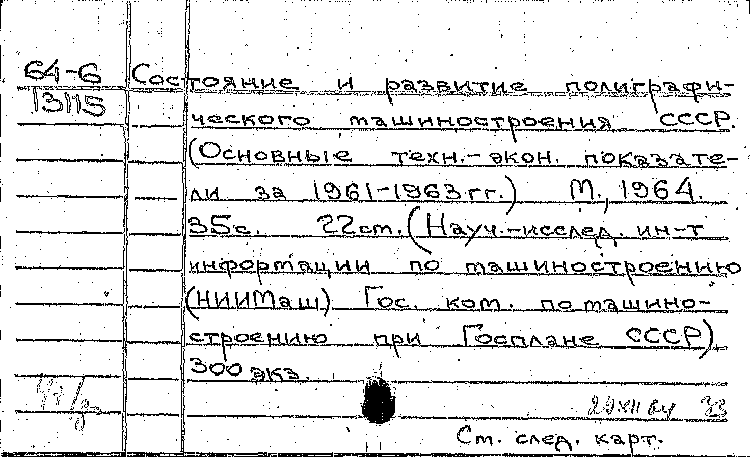 64-6 Состояние и развитие полиграфи-
13115 ческого машиностроения СССР.
(Основные техн.-экон. показате-
ли за 1961-1963 гг.) М., 1964.
35с. 22см. (Науч.-исслед. ин-т
информации по машиностроению
(НИИМаш) Гос. ком. по машино-
строению при Госплане СССР)
300 экз.
29 XII 64 33
См. след. карт.